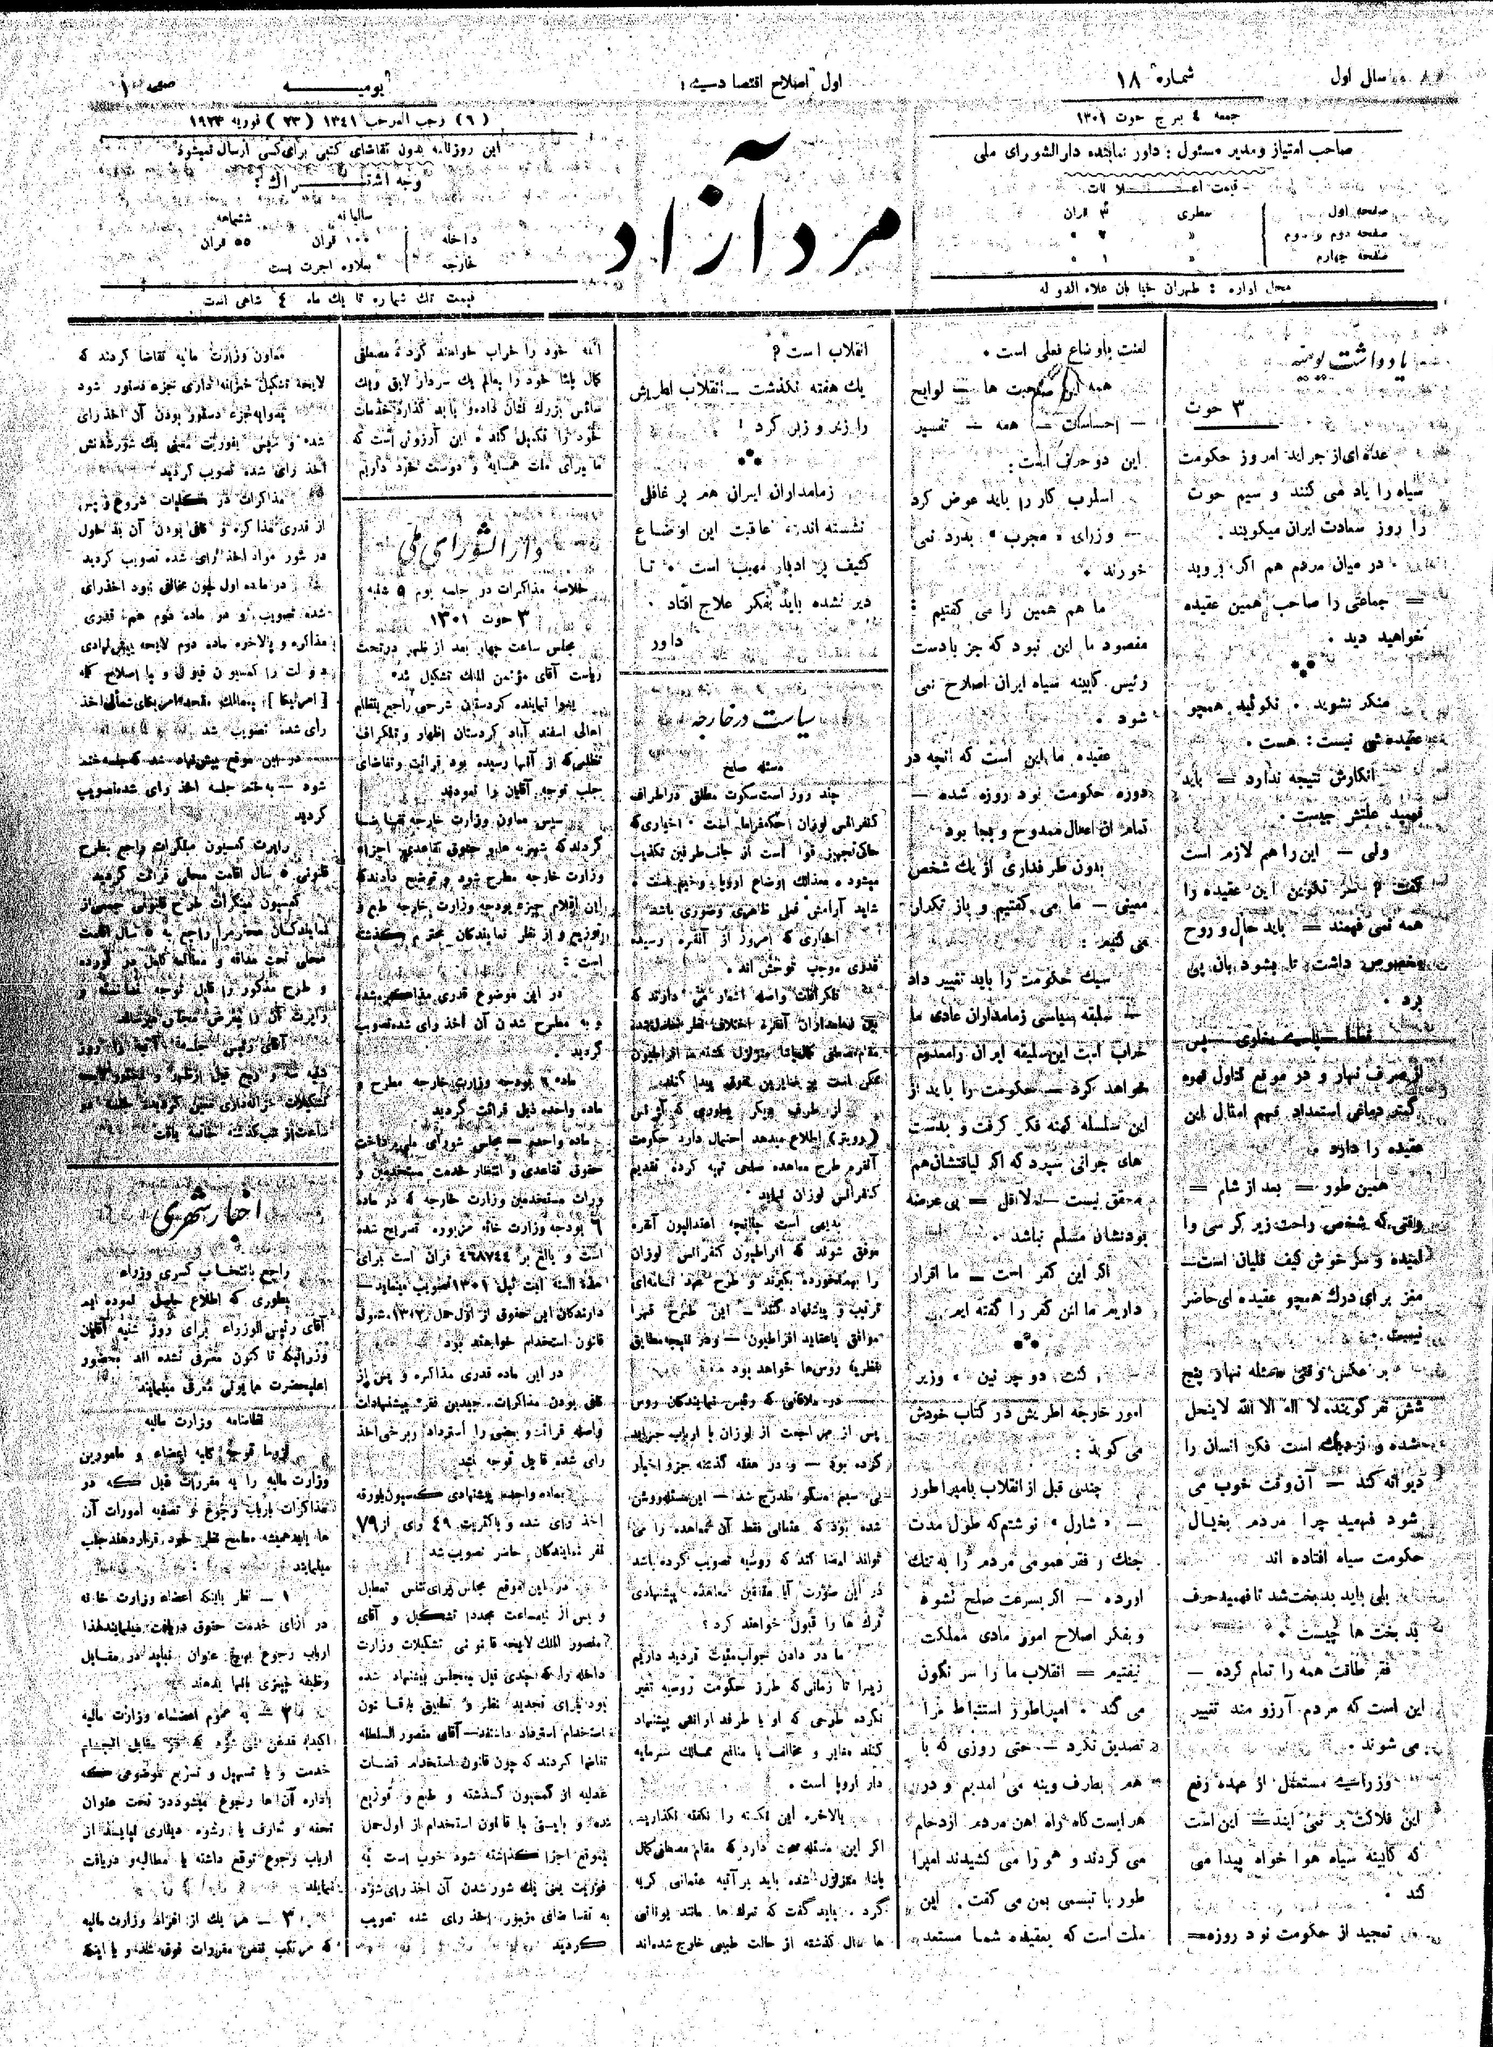 سال اول
شماره ۱۸
اول اصلاح اقتصادیست :
یومیه
صفحه ۱
جمعه ٤ برج حوت ۱۳۰۱
(٦) رجب المرجب ۱۳٤۱ (۲۳) فوریه ۱۹۲۳
صاحب امتیاز و مدیر مسئول : داور نماینده دارالشورای ملی
قیمت اعلانات
صفحه اول سطری ۳ قران
صفحه دوم و سوم » ۲ »
صفحه چهارم » ۱ »
محل اداره : طهران خیابان علاء الدوله
مرد آزاد
این روزنامه بدون تقاضای کتبی برای کسی ارسال نمیشود
وجه اشتراک :
سالیانه ششماهه
داخله ۱۰۰ قران ۵۵ قران
خارجه بعلاوه اجرت پست
قیمت تک شماره تا یک ماه ٤ شاهی است
یادداشت یومیه
۳ حوت
عده ای از جراید امروز حکومت
سیاه را یاد می کنند و سیم حوت
را روز سعادت ایران میگویند .
در میان مردم هم اگر بروید
= جماعتی را صاحب همین عقیده
خواهید دید .
منکر نشوید . نگوئید همچو
عقیده ئی نیست : هست .
انکارش نتیجه ندارد = باید
فهمید علتش چیست .
ولی — این را هم لازم است
گفت ؟ سر تکوین این عقیده را
همه نمی فهمند = باید حال و روح
مخصوص داشت تا بشود بان پی
برد .
از صرف نهار و در موقع تناول قهوه
کمتر دماغی استعداد فهم امثال این
عقیده را دارد .
همین طور = بعد از شام =
وقتی که شخص راحت زیر کرسی وا
لمیده و سر خوش کیف قلیان است —
مغز برای درک همچو عقیده ای حاضر
نیست .
بر عکس وقتی مسئله نهار پنج
شش نفر گوینده لا اله الا الله لاینحل
شده و نزدیک است فکر انسان را
دیوانه کند — آن وقت خوب می
شود فهمید چرا مردم بخیال
حکومت سیاه افتاده اند
بلی باید بدبخت شد تا فهمید حرف
بدبخت ها چیست .
فقر طاقت همه را تمام کرده —
این است که مردم آرزو مند تغییر
می شوند .
وزرای مستعمل از عهده رفع
این فلاکت بر نمی آیند = این است
که کابینه سیاه هوا خواه پیدا می
کند .
تمجید از حکومت نود روزه =
لعنت باوضاع فعلی است .
همه این صحبت ها — لوایح
— احساسات — همه — تفسیر
این دو حرف است :
اسلوب کار را باید عوض کرد
— وزرای « مجرب » بدرد نمی
خورند .
ما هم همین را می گفتیم :
مقصود ما این نبود که جز بادست
رئیس کابینه سیاه ایران اصلاح نمی
شود .
عقیده ما این است که آنچه در
دوره حکومت نود روزه شده —
تمام آن اعمال ممدوح و بجا بود
بدون طرفداری از یک شخص
معینی — ما می گفتیم و باز تکرار
می کنیم :
سبک حکومت را باید تغییر داد
— سلیقه سیاسی زمامداران عادی ما
خراب است این سلیقه ایران را معدوم
خواهد کرد — حکومت را باید از
این سلسله کهنه فکر گرفت و بدست
های جوانی سپرد که اگر لیاقتشان هم
محقق نیست — لااقل — بی عرضه
بودنشان مسلم نباشد .
اگر این کفر است — ما اقرار
داریم ما این کفر را گفته ایم .
کنت دو چرنین « وزیر
امور خارجه اطریش در کتاب خودش
می گوید :
چندی قبل از انقلاب بامپراطور
— « شارل » نوشتم که طول مدت
جنگ و فقر عمومی مردم را به تنگ
آورده — اگر بسرعت صلح نشود
و بفکر اصلاح امور مادی مملکت
نیفتیم = انقلاب ما را سرنگون
می کند . امپراطور استنباط مرا
تصدیق نکرد — حتی روزی که با
هم بطرف وینه می آمدیم و در
هر ایستگاه راه آهن مردم ازدحام
می کردند و هورا می کشیدند امپرا
طور با تبسمی بمن می گفت . این
ملت است که بعقیده شما مستعد
انقلاب است ؟
یک هفته نگذشت — انقلاب اطریش
را زیر و زبر کرد !
زمامداران ایران هم بر غافلی
نشسته اند : عاقبت این اوضاع
کثیف پر ادبار مهیب است . تا
دیر نشده باید بفکر علاج افتاد .
داور
سیاست در خارجه
مسئله صلح
چند روز است سکوت مطلق در اطراف
کنفرانس لوزان حکمفرما است . اخباری که
حاکی تجهیز قوا است از جانب طرفین تکذیب
میشود . معذلک اوضاع اروپا وخیم است .
شاید آرامش فعلی ظاهری و صوری باشد
اخباری که امروز از آنقره رسیده
قدری موجب توحش اند .
تلگرافات واصله اشعار می دارند که
بین زمامداران آنقره اختلاف نظر حاصل شده
از طرف دیگر بطوری که آژانس
(رویتر) اطلاع میدهد احتمال دارد حکومت
آنقره طرح معاهده صلحی تهیه کرده تقدیم
کنفرانس لوزان نماید .
بدیهی است چنانچه اعتدالیون آنقره
موفق شوند که افراطیون کنفرانس لوزان
ترتیب و پیشنهاد کنند — این طرح قهرا
موافق با عقاید افراطیون — و در نتیجه مطابق
نظریه روسها خواهد بود
در ملاقاتی که رئیس نمایندگان روس
پس از مراجعت از لوزان با ارباب جراید
کرده بود — و در هفته گذشته جزو اخبار
بی سیم مسکو مندرج شد — این مسئله روشن
شده بود که عثمانی فقط آن معاهده را می
تواند امضا کند که روسیه تصویب کرده باشد
در این صورت آیا متفقین معاهده پیشنهادی
ترک ها را قبول خواهند کرد ؟
ما در دادن جواب مثبت تردید داریم
زیرا تا زمانی که طرز حکومت روسیه تغییر
نکرده طرحی که او یا طرفدارانش پیشنهاد
کنند مغایر و مخالف با منافع ممالک سرمایه
دار اروپا است .
بالاخره این نکته را نگفته نگذاریم
اگر این مسئله صحت دارد که مقام مصطفی کمال
پاشا متزلزل شده باید بر آتیه عثمانی گریه
کرد . باید گفت که ترک ها مانند یونانی
ها سال گذشته از حالت طبیعی خارج شده اند
آتیه خود را خراب خواهند کرد مصطفی
کمال پاشا خود را بعالم یک سردار لایق و یک
سائس بزرگ نشان داده و باید گذارد خدمات
خود را تکمیل کند . این آرزوئی است که
ما برای ملت همسایه و دوست خود داریم
دارالشورای ملی
خلاصه مذاکرات در جلسه یوم ۵ شنبه
۳ حوت ۱۳۰۱
مجلس ساعت چهار بعد از ظهر در تحت
ریاست آقای مؤتمن الملک تشکیل شد
نماینده کردستان شرحی راجع بتظلم
اهالی اسفند آباد کردستان اظهار و تلگراف
تظلمی که از آنها رسیده بود قرائت و تقاضای
جلب توجه آقایان را نمودند
سپس معاون وزارت خارجه تقاضا
وزارت خارجه مطرح شود و توضیح دادند که
این اقلام جزء بودجه وزارت خارجه طبع و
توزیع و از نظر نمایندگان محترم گذشته
است :
در این موضوع قدری مذاکره شده
و به مطرح شدن آن اخذ رای شده تصویب
گردید .
ماده ٦ بودجه وزارت خارجه مطرح و
ماده واحده ذیل قرائت گردید
ماده واحده — مجلس شورای ملی پرداخت
حقوق تقاعدی و انتظار خدمت مستخدمین و
وراث مستخدمین وزارت خارجه که در ماده
٦ بودجه وزارت خانه مزبوره تصریح شده
است و بالغ بر ٤٦۸۷٤٤ قران است برای
دارندگان این حقوق از اول حمل ۱۳۰۲ مشمول
قانون استخدام خواهند بود
در این ماده قدری مذاکره و پس از
کافی بودن مذاکرات چندین فقره پیشنهادات
واصله قرائت و بعضی را استرداد و برخی اخذ
رای شده قابل توجه نشد
بماده واحده پیشنهادی کمیسیون با ورقه
اخذ رای شده و باکثریت ٤۹ رای از ۷۹
نفر نمایندگان حاضر تصویب شد
در این موقع مجلس برای تنفس تعطیل
و پس از نیمساعت مجددا تشکیل و آقای
منصور الملک لایحه قانونی تشکیلات وزارت
داخله را که چندی قبل به مجلس پیشنهاد شده
بود برای تجدید نظر و تطبیق با قانون
استخدام استرداد داشتند — آقای منصور السلطنه
تقاضا کردند که چون قانون استخدام قضات
عدلیه از کمیسیون گذشته و طبع و توزیع
شده و بایستی با قانون استخدام از اول حمل
بموقع اجرا گذاشته شود خوب است به
فوریت یعنی یک شور شدن آن اخذ رای شود
به تقاضای مزبور اخذ رای شده تصویب
گردید
معاون وزارت مالیه تقاضا کردند که
لایحه تشکیل خزانه داری جزء دستور شود
بدوا به جزء دستور بودن آن اخذ رای
شده و سپس بفوریت یعنی یک شور شدنش
اخذ رای شده تصویب گردید
مذاکرات در کلیات شروع و پس
از قدری مذاکره و کافی بودن آن بدخول
در شور مواد اخذ رای شده تصویب گردید
در ماده اول چون مخالفی نبود اخذ رای
شده تصویب و در ماده دوم هم قدری
مذاکره و بالاخره ماده دوم لایحه پیشنهادی
دولت را کمیسیون قبول و با اصلاح کلمه
[امریکا] به ممالک متحده امریکای شمالی اخذ
رأی شده تصویب شد
در این موقع پیشنهاد شد که جلسه ختم
شود — به ختم جلسه اخذ رای شده تصویب
گردید
راپرت کمیسیون مبتکرات راجع بطرح
قانونی ۵ سال اقامت محلی قرائت گردید
کمیسیون مبتکرات طرح قانونی جمعی از
نمایندگان محترم را راجع به ۵ سال اقامت
محلی تحت مداقه و مطالعه کامل در آورده
و طرح مذکور را قابل توجه دانسته و
اخبار شهری
راجع بانتخاب کسری وزراء
بطوری که اطلاع حاصل نموده ایم
آقای رئیس الوزراء برای روز شنبه آقایان
وزرائیکه تا کنون معرفی نشده اند بحضور
اعلیحضرت همایونی معرفی مینمایند
نظامنامه وزارت مالیه
لزوما توجه کلیه اعضاء و مامورین
وزارت مالیه را به مقررات ذیل که در
مذاکرات با ارباب رجوع و تصفیه امورات آن
ها باید همیشه مطمح نظر خود قرار دهند جلب
مینماید :
۱ — نظر باینکه اعضاء وزارت خانه
در ازای خدمت حقوق دریافت مینمایند لهذا
ارباب رجوع بهیچ عنوان نباید در مقابل
وظیفه چیزی بآنها بدهند
۲ — به عموم اعضاء وزارت مالیه
اکیدا قدغن می شود که در مقابل انجام
خدمت و یا تسهیل و تسریع موضوعی که
باداره آن ها رجوع میشود در تحت عنوان
تحفه و تعارف یا رشوه دیناری نباید از
ارباب رجوع توقع داشته یا مطالبه و دریافت
نمایند
۳ — هر یک از افراد وزارت مالیه
که مرتکب نقض مقررات فوق شد و یا اینکه